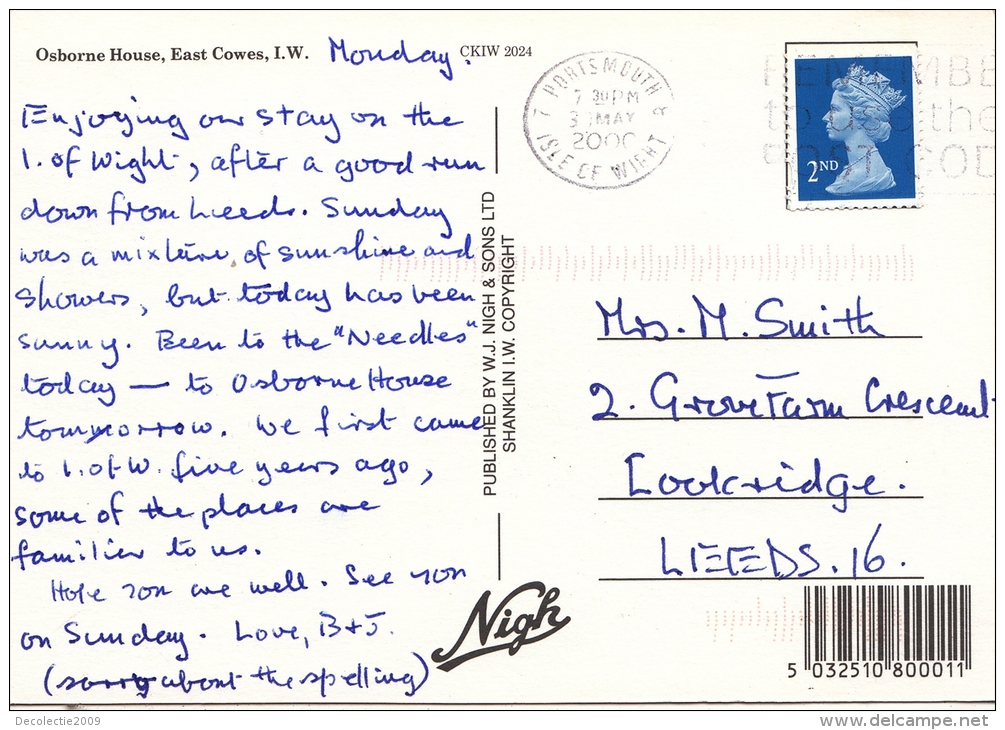 Osborne House, East Cowes, I.W.
Monday.
CKIW 2024
Enjoying our stay on the
I. of Wight, after a good run
down from Leeds. Sunday
was a mixture of sunshine and
showers, but today has been
sunny. Been to the "Needles"
today — to Osborne House
tomorrow. We first came
to I. of W. five years ago,
some of the places are
familier to us.
Hope you are well. See you
on Sunday. Love, B+J.
(sorry about the spelling)
PUBLISHED BY W.J. NIGH & SONS LTD
SHANKLIN I.W. COPYRIGHT
Nigh
PORTSMOUTH &
ISLE OF WIGHT
7 30PM
MAY
2000
REMEMBE
to use the
POST COD
2ND
Mrs. M. Smith
2. Grove Farm Crescent
Cookridge.
LEEDS. 16.
5 032510 800011
Decolectie2009
delcampe.net